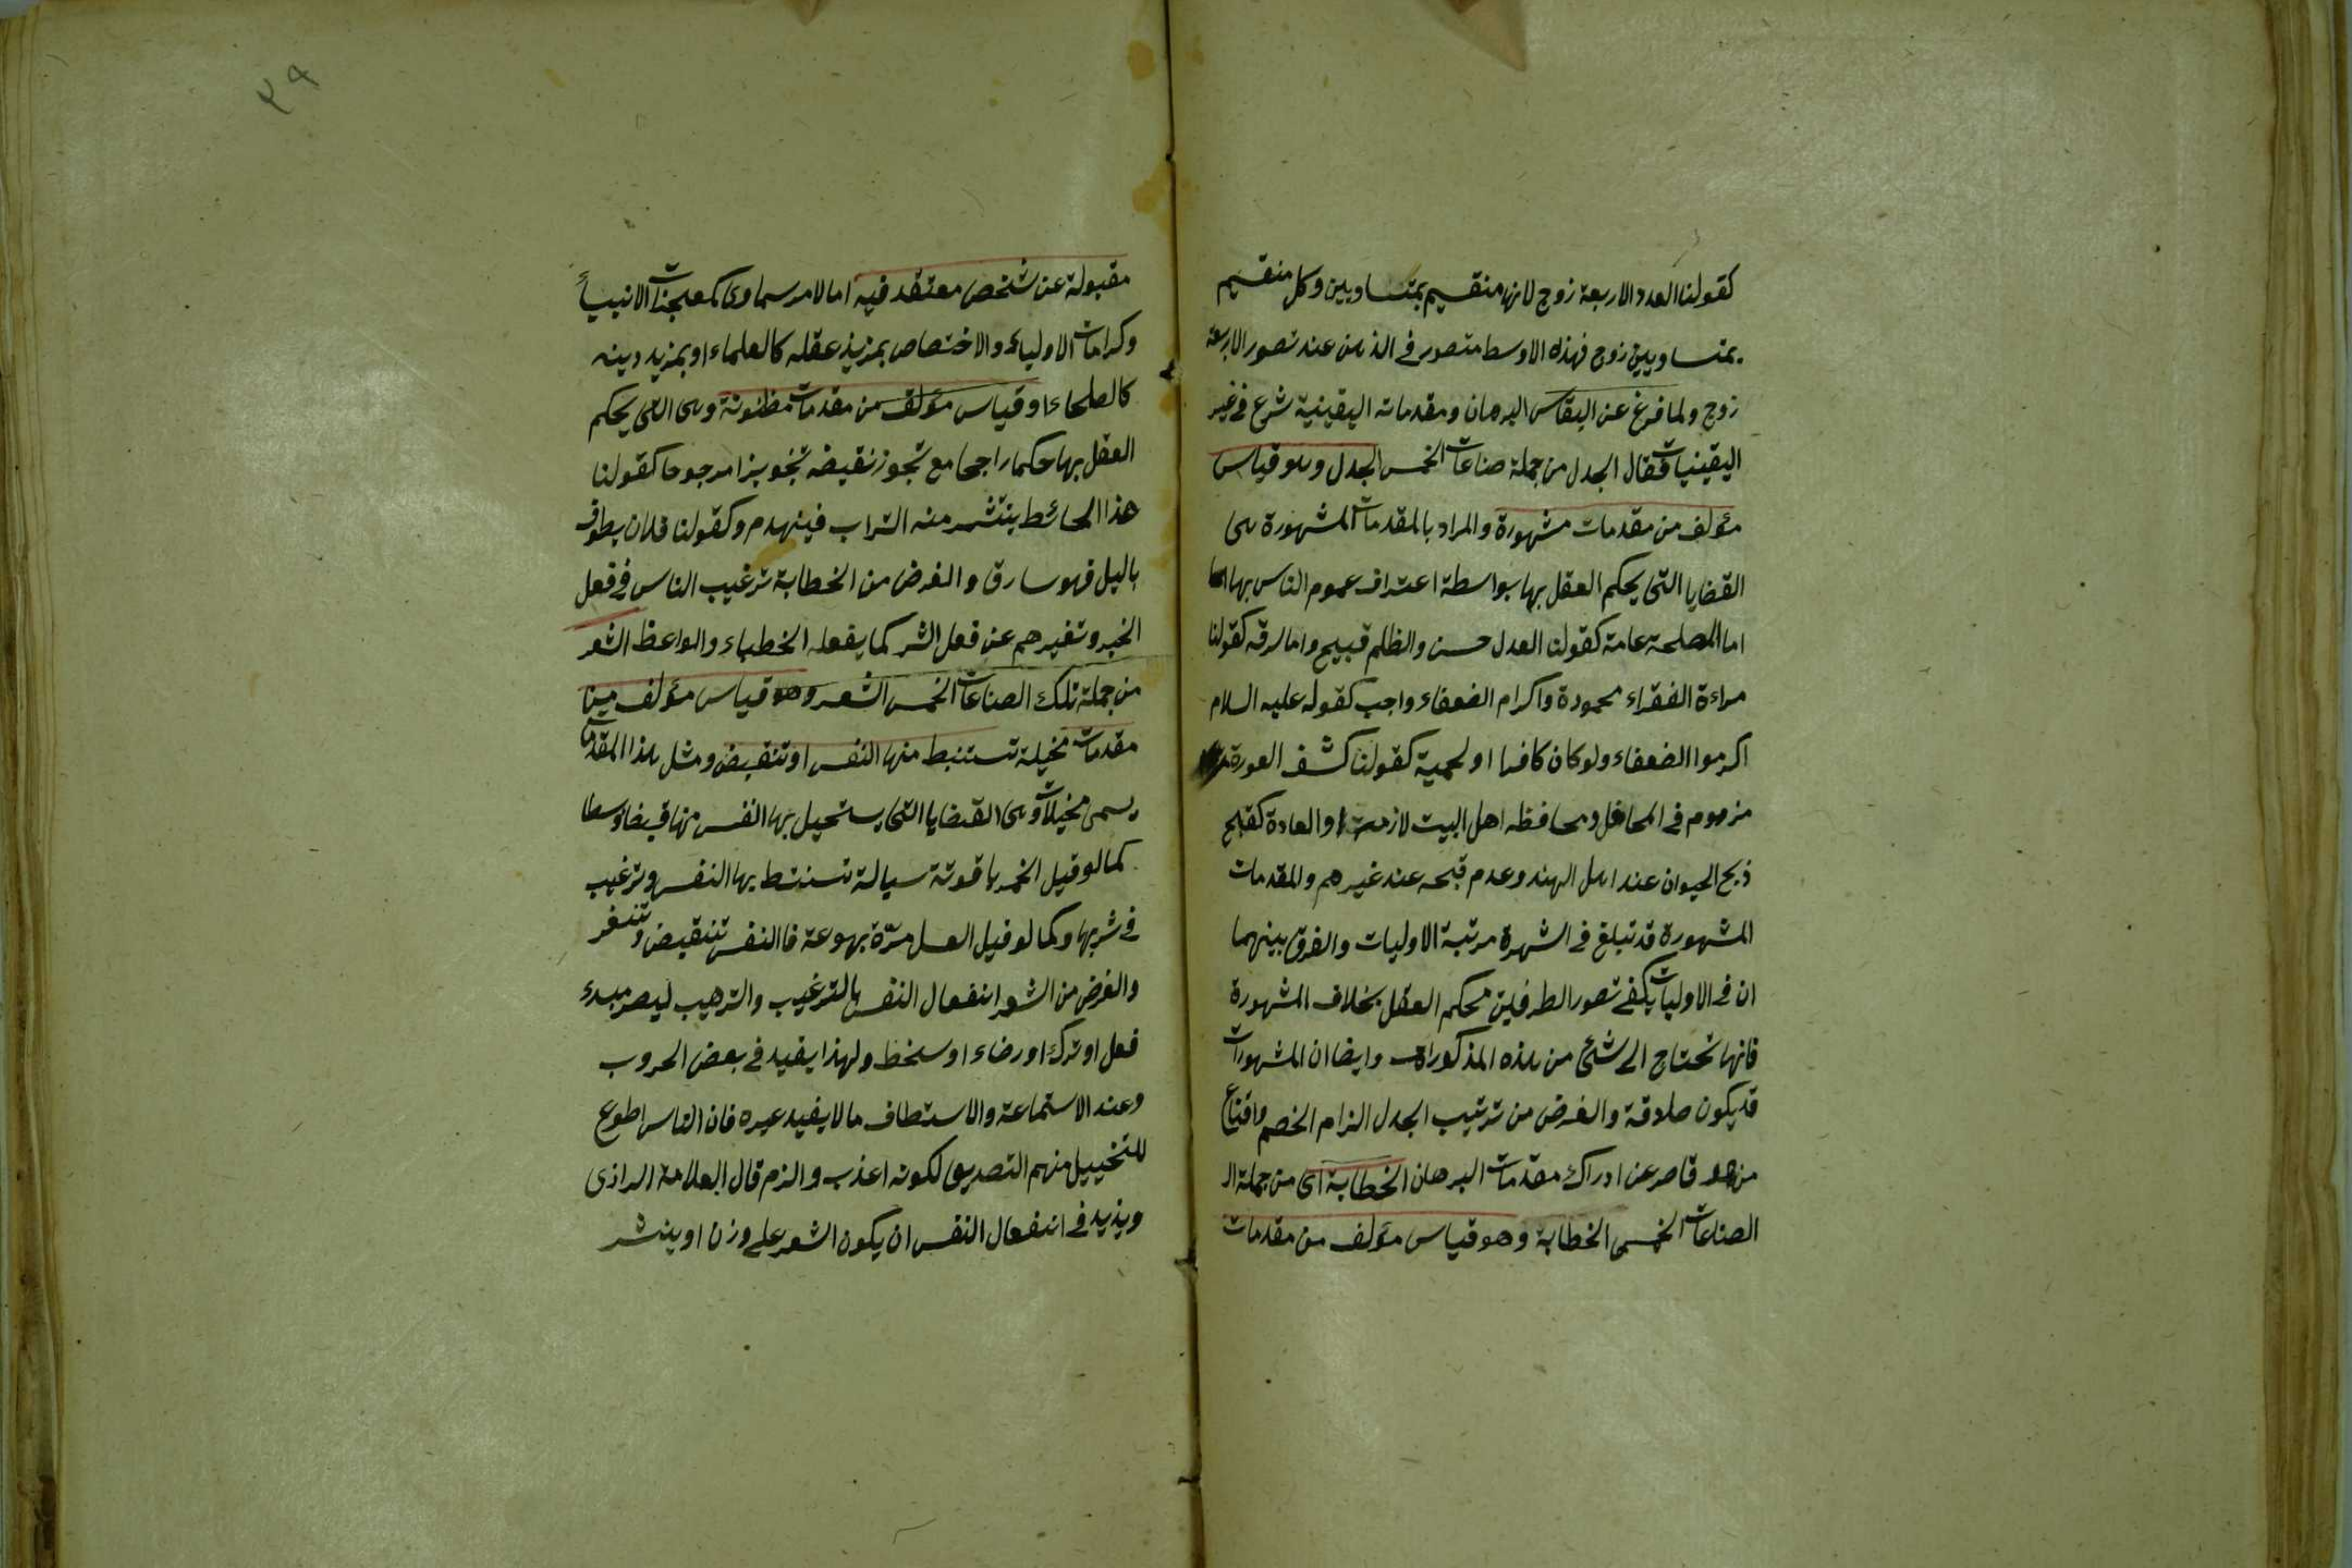 كقولنا العدد الاربعة زوج لانها منقسيم بمتساويين وكل منقسيم
بمتساويين زوج فهذه الاوسط متصور في الذهن عند تصور الاربعة
زوج ولما فرغ عن القياس البرهان ومقدماته اليقينية شرع في غير
اليقينيات فقال الجدل من جملة صناعات الخمس الجدل وهو قياس
مؤلف من مقدمات مشهورة والمراد بالمقدمات المشهورة هى
القضايا التى يحكم العقل بها بواسطة اعتراف عموم الناس بها
اما المصلحة عامة كقولنا العدل حسن والظلم قبيح واما لرقه كقولنا
مراءة الفقراء محمودة واكرام الضعفاء واجب كقوله عليه السلام
اكرموا الضعفاء ولو كان كافرا او لحمية كقولنا كشف العورة
مزموم في المحافل ومحافظه اهل البيت لازمة او العادة كقبح
ذبح الحيوان عند اهل الهند وعدم قبحه عند غيرهم والمقدمات
المشهورة قد تبلغ في الشهرة مرتبة الاوليات والفرق بينهما
ان في الاوليات يكفے تصور الطرفين محكم العقل بخلاف المشهورة
فانها تحتاج الى شئ من هذه المذكورات وايضا ان المشهورات
قد يكون صادقة والغرض من ترتيب الجدل الزام الخصم واقناع
من هو قاصر عن ادراك مقدمات البرهان الخطابة اى من جملة الـ
الصناعات الخمس الخطابة وهو قياس مؤلف من مقدمات
٢٩
مقبولة عن شخص معتقد فيه اما لامر سماوى كمعجزات الانبياء
وكرامات الاولياء والاختصاص بمزيد عقله كالعلماء او بمزيد دينه
كالصلحاء او قياس مؤلف من مقدمات مظنونة وهى التى يحكم
العقل بها حكما راجحا مع تجوز نقيضه تجويزا مرجوحا كقولنا
هذا الحائط ينتثر منه التراب فينهدم وكقولنا فلان يطوف
باليل فهو سارق والغرض من الخطابة ترغيب الناس في فعل
الخير وتنفيرهم عن فعل الشر كما يفعله الخطباء والواعظ الشعر
من جملة تلك الصناعات الخمس الشعر وهو قياس مؤلف من
مقدمات مخيلة تستنبط منها النفس او تنقبض ومثل هذا المقدمات
يسمى مخيلات وهى القضايا التى يستحيل بها النفس منها قبضا وبسطا
كما لو قيل الخمر ياقوتة سيالة تنشط بها النفس وترغيب
في شربها وكما لو قيل العسل مرّة بهوعة فالنفس تنقبض وتنفر
والغرض من الشعر انفعال النفس بالترغيب والترهيب ليصر مبدء
فعل او ترك او رضاء او سخط ولهذا يفيد في بعض الحروب
وعند الاستماعة والاستطاف ما لا يفيد غيره فان الناس اطوع
للتخييل منهم التصديق لكونه اعذب والزم قال العلامة الرازى
ويزيد في انفعال النفس ان يكون الشعر على وزن او ينشر